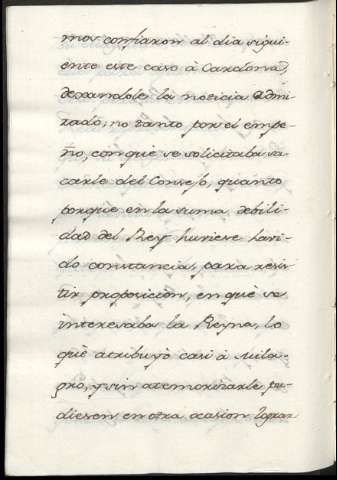 mos confiaron al dia sigui-
ente este caso à Cardona,
dexandole la noticia admi
rado, no tanto por el empe-
ño, con què se solicitaba sa-
carle del Consejo, quanto
porque en la suma debili-
dad del Rey huviese havi-
do constancia, para resis-
tir proposicion, en què se
interesaba la Reyna, lo
què atribuyò casi à mila-
gro, y sin atemorizarle pu-
diesen en otra ocasion lograr